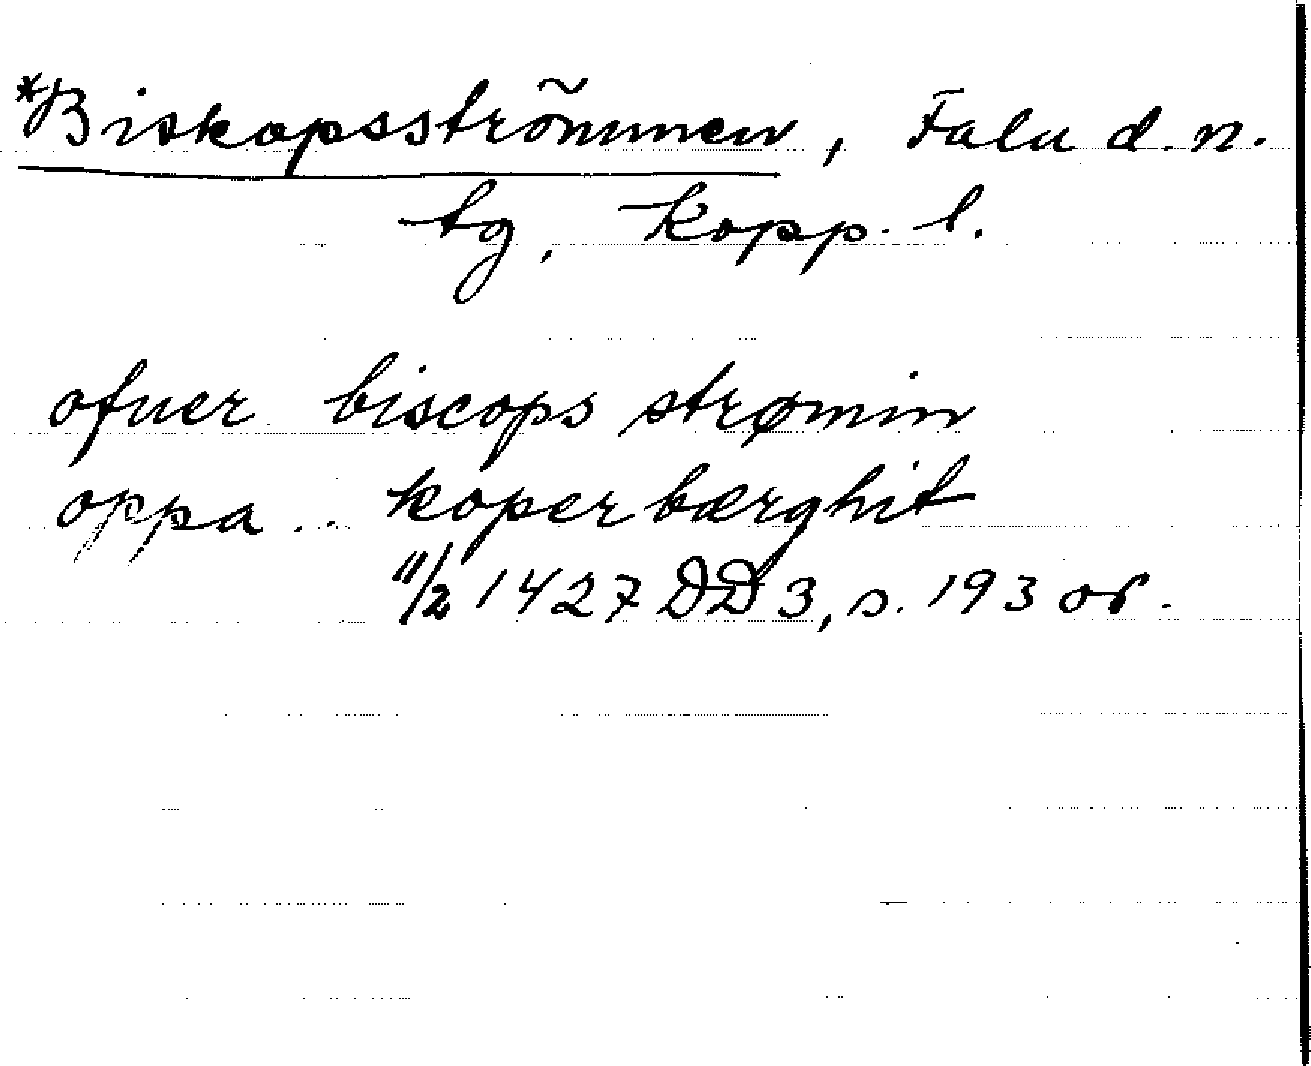 *Biskopsströmmen, Falu d. n.
tg, Kopp. l.
ofuer biscops strømin
oppa ... koperbærghit
11/2 1427 DD 3, s. 193 or.